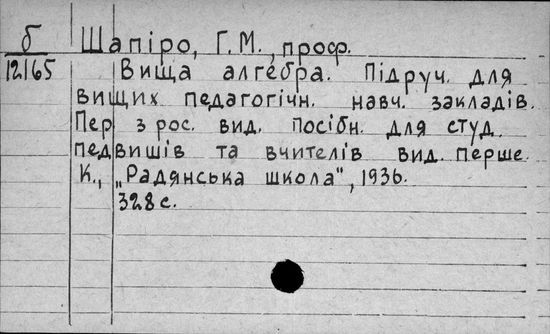 б
12165
Шапіро, Г.М., проф.
Вища алгебра. Підруч. для
вищих педагогічн. навч. закладів.
Пер з рос. вид. посібн. для студ.
педвишів та вчителів вид. перше.
К., „Радянська школа", 1936.
328 с.